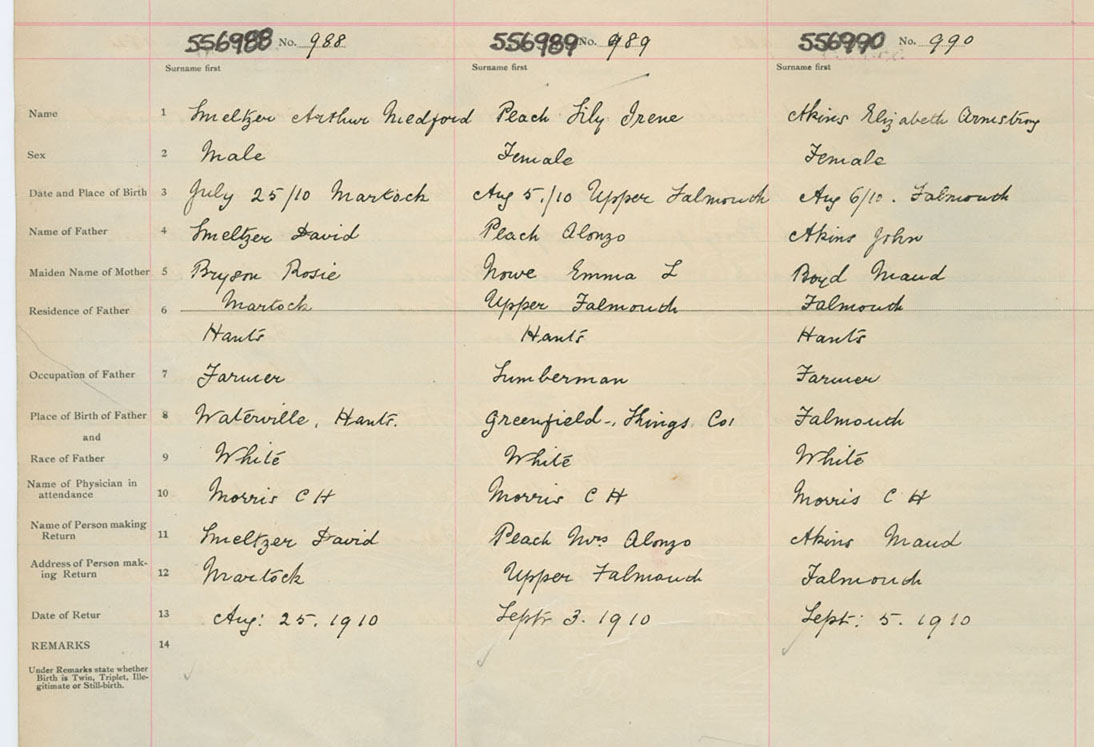 556988 No. 988 556989 No. 989 556990 No. 990
Surname first Surname first Surname first
Name 1 Smeltzer Arthur Medford Peach Lily Irene Akins Elizabeth Armstrong
Sex 2 Male Female Female
Date and Place of Birth 3 July 25/10 Martock Aug 5./10 Upper Falmouth Aug 6/10. Falmouth
Name of Father 4 Smeltzer David Peach Alonzo Akins John
Maiden Name of Mother 5 Bryson Rosie Nowe Emma L Boyd Maud
Residence of Father 6 Martock Upper Falmouth Falmouth
Hants Hants Hants
Occupation of Father 7 Farmer Lumberman Farmer
Place of Birth of Father 8 Waterville, Hants. Greenfield-, Kings Co: Falmouth
and
Race of Father 9 White White White
Name of Physician in 10 Morris C H Morris C H Morris C H
attendance
Name of Person making 11 Smeltzer David Peach Mrs Alonzo Akins Maud
Return
Address of Person mak- 12 Martock Upper Falmouth Falmouth
ing Return
Date of Retur 13 Aug: 25. 1910 Sept: 3. 1910 Sept: 5. 1910
REMARKS 14
Under Remarks state whether
Birth is Twin, Triplet, Ille-
gitimate or Still-birth.